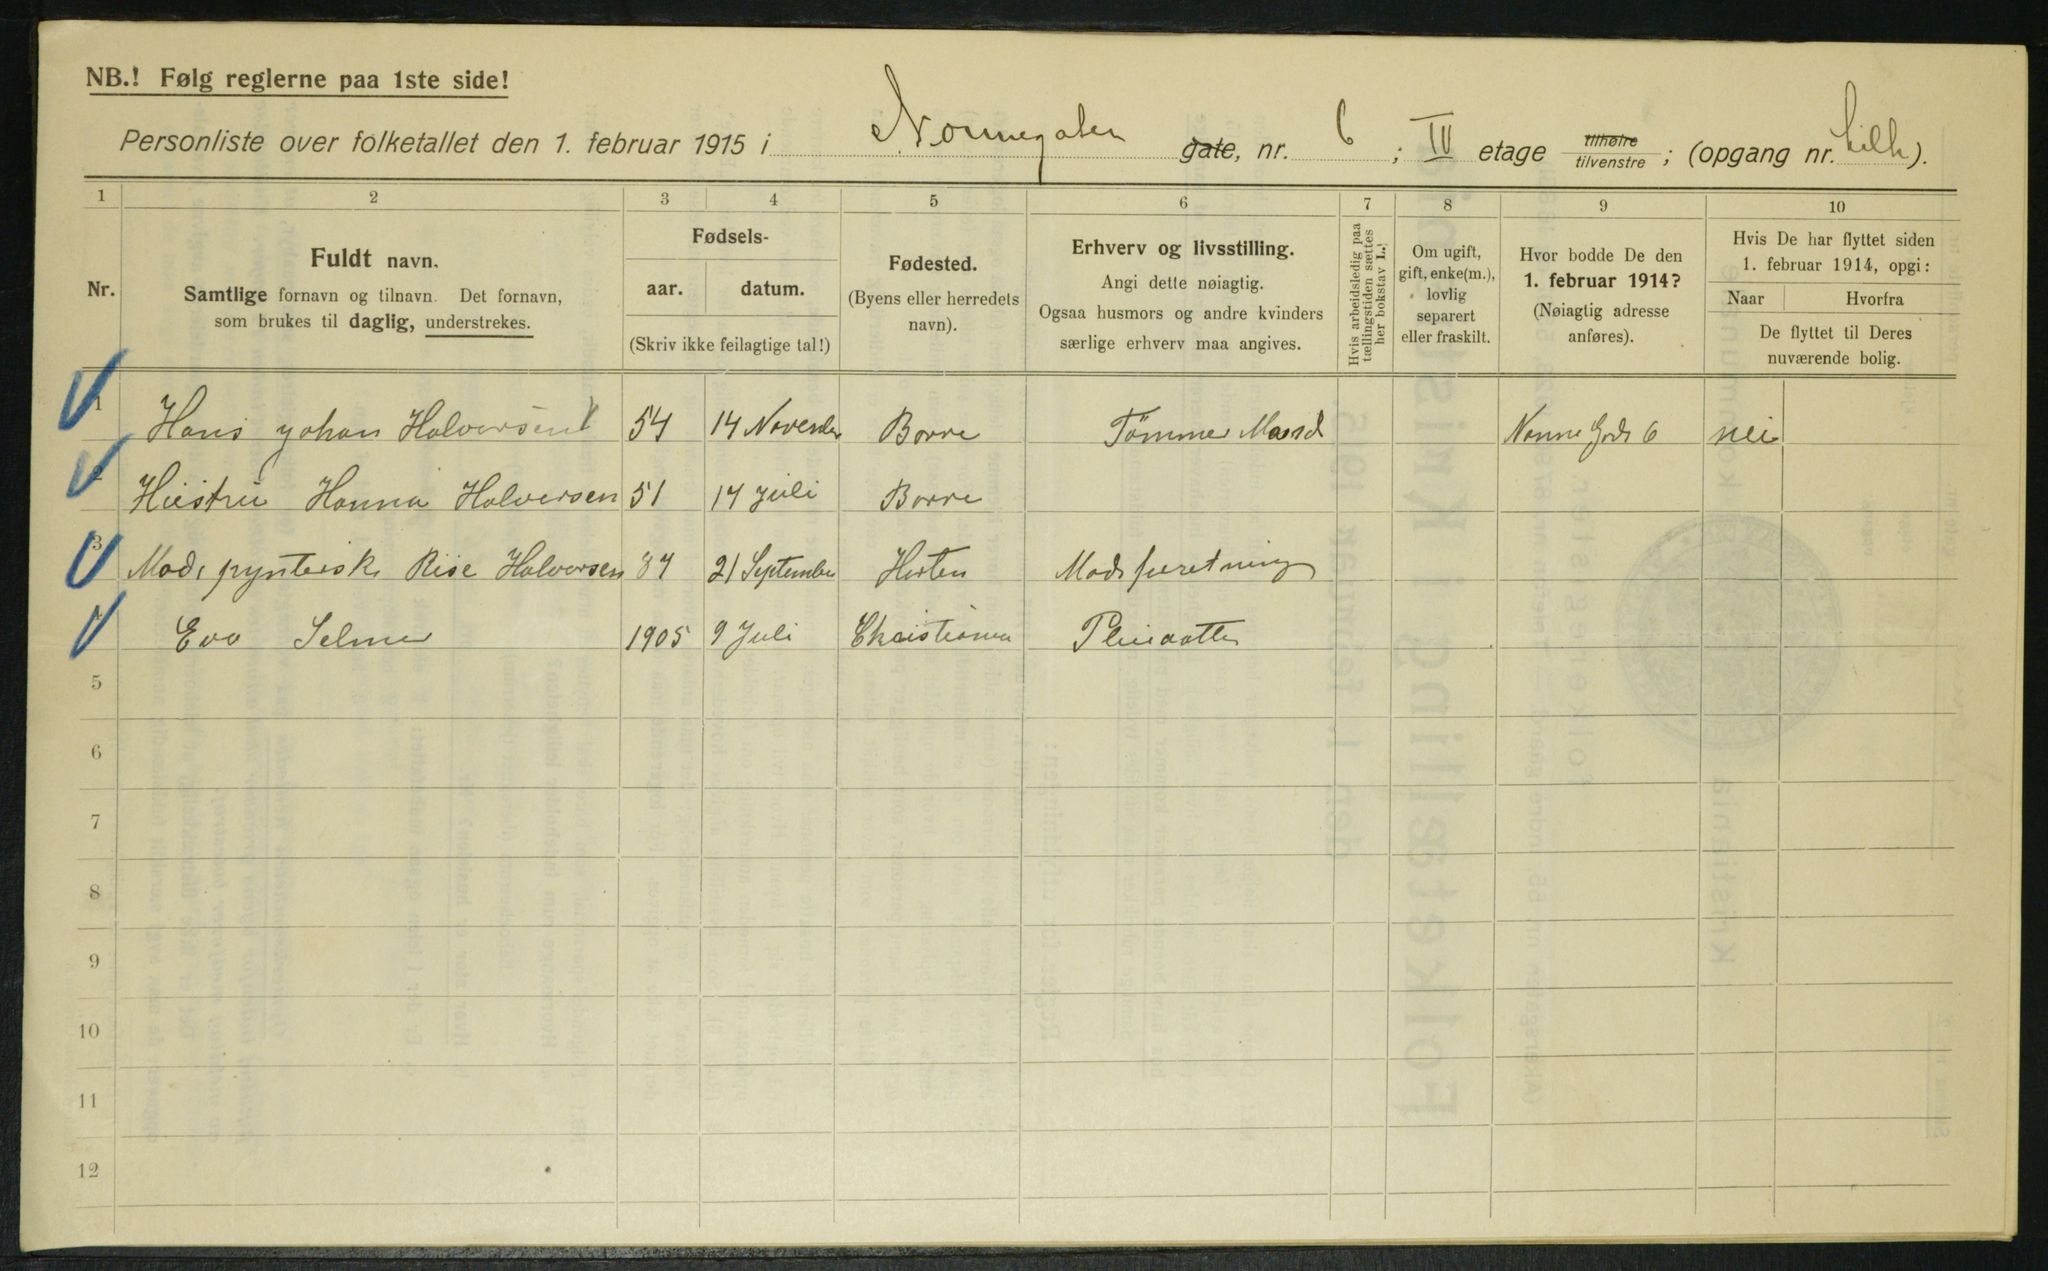 NB.! Følg reglerne paa 1ste side!
Personliste over folketallet den 1. februar 1915 i Nonnegaten gate, nr. 6 ; IV etage tilhøire tilvenstre ; (opgang nr. ).
1 2 3 4 5 6 7 8 9 10
Nr.
Fuldt navn.
Samtlige fornavn og tilnavn. Det fornavn,
som brukes til daglig, understrekes.
Fødsels-
aar. datum.
(Skriv ikke feilagtige tal!)
Fødested.
(Byens eller herredets
navn).
Erhverv og livsstilling.
Angi dette nøiagtig.
Ogsaa husmors og andre kvinders
særlige erhverv maa angives.
Hvis arbeidsledig paa
tællingstiden sættes
her bokstav L.!
Om ugift,
gift, enke(m.),
lovlig
separert
eller fraskilt.
Hvor bodde De den
1. februar 1914?
(Nøiagtig adresse
anføres).
Hvis De har flyttet siden
1. februar 1914, opgi:
Naar Hvorfra
De flyttet til Deres
nuværende bolig.
1 Hans Johan Halversen 54 14 November Borre Tömmer Mand Nonne Gade 6 nei
2 Hustru Hanna Halversen 51 14 Juli Borre
3 Halversen 21 September Horten
4 Eva Selmer 1905 9 Juli Christiania Pleiedatter
5
6
7
8
9
10
11
12